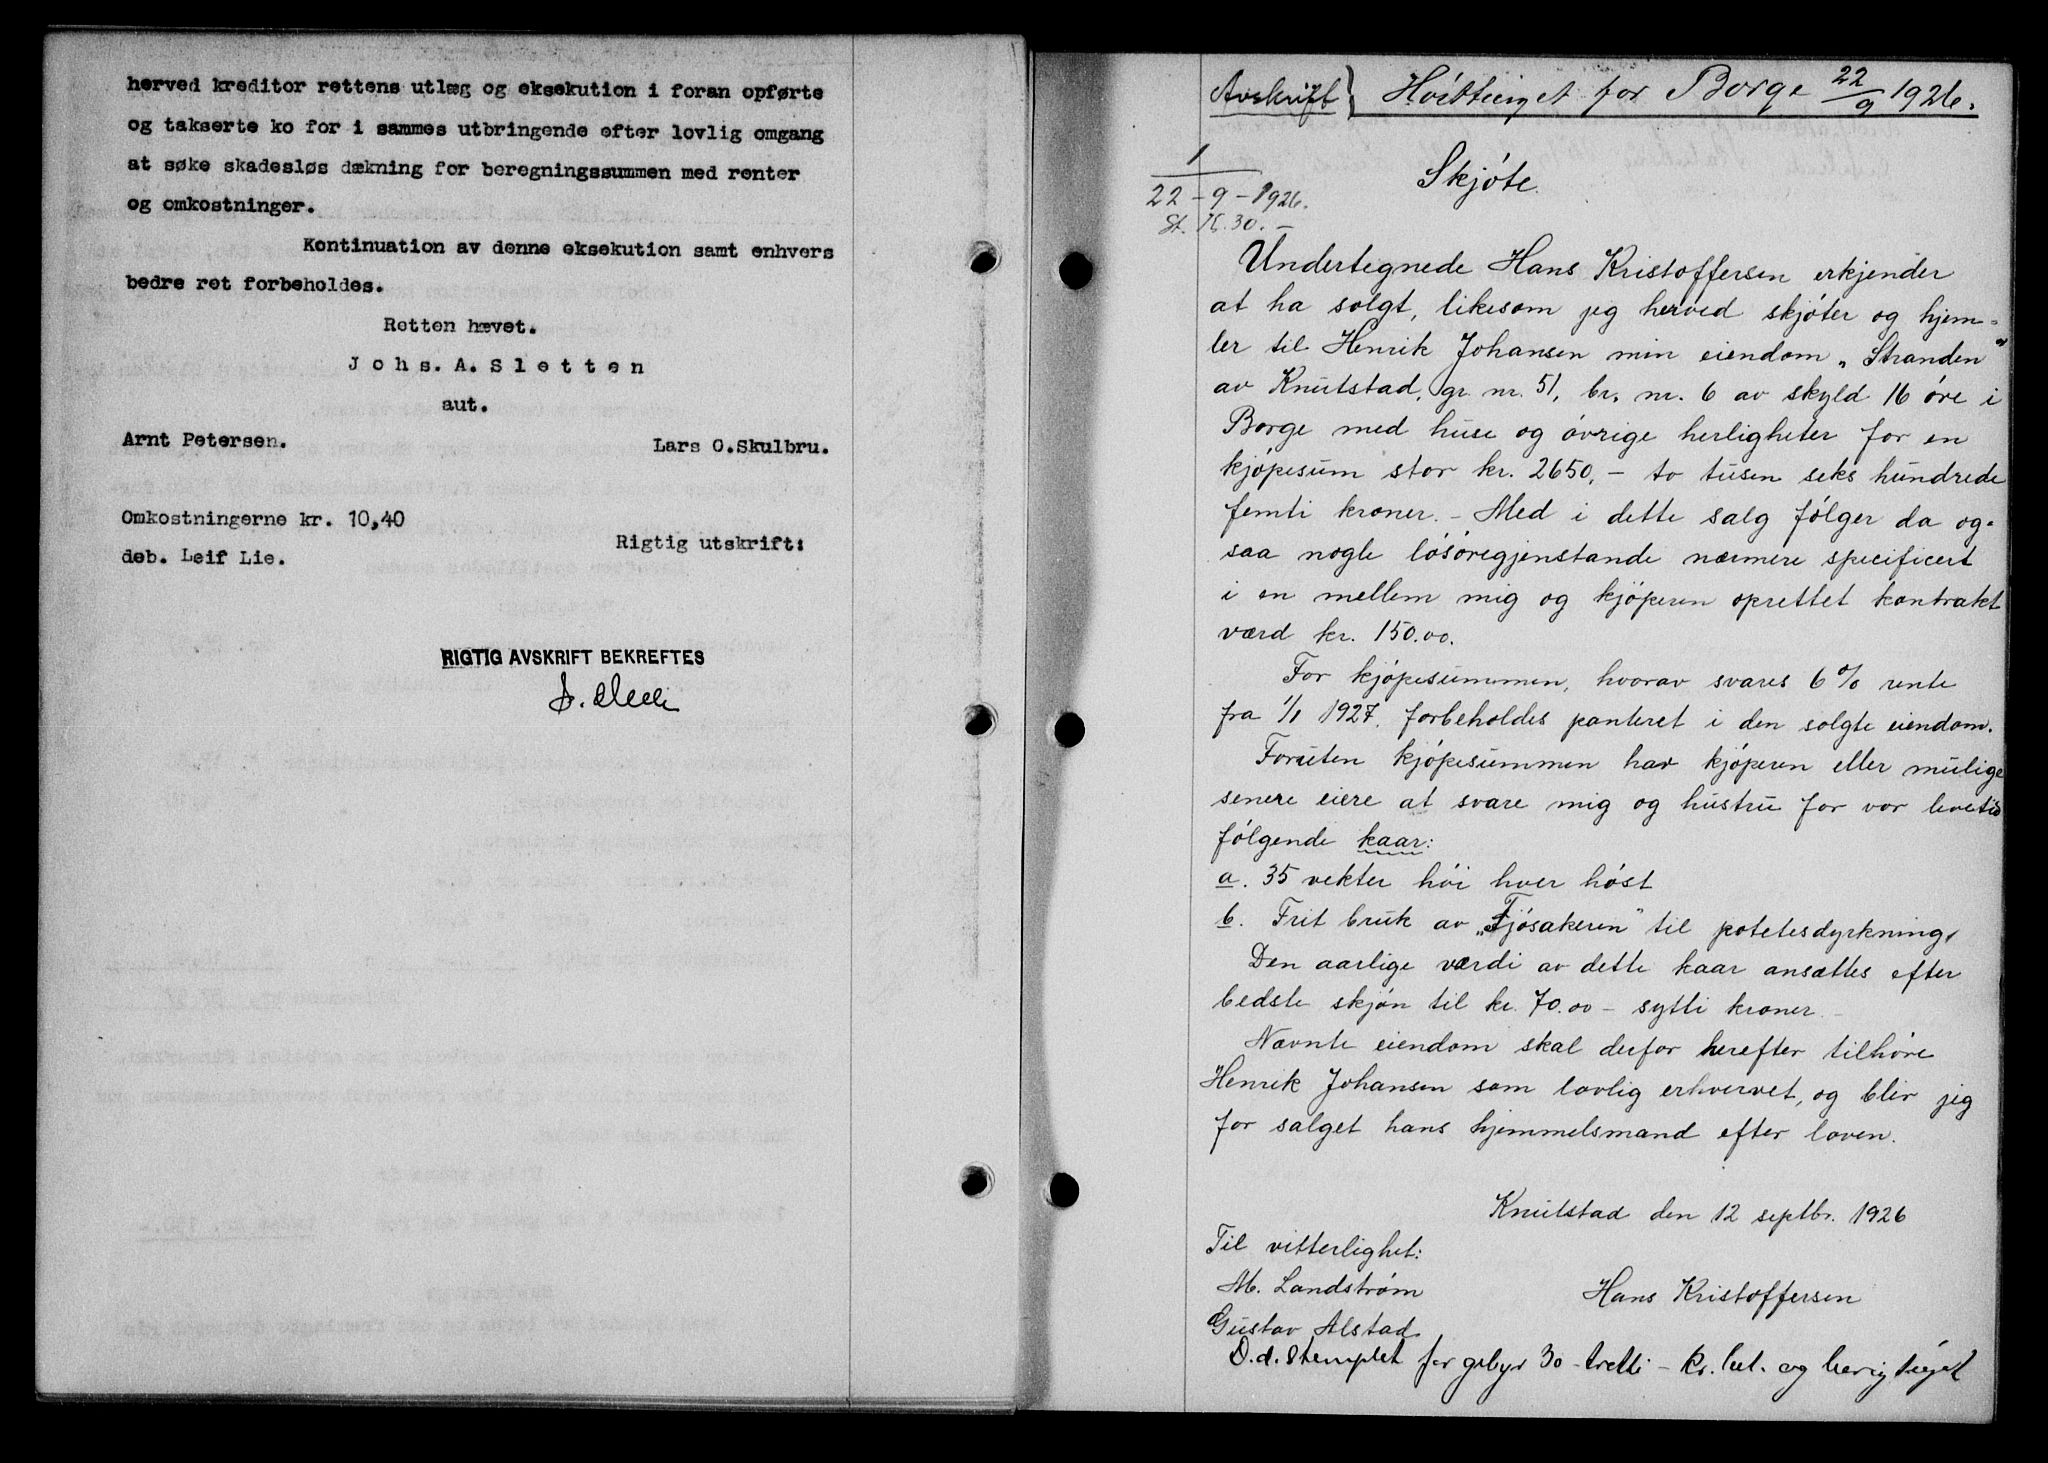 herved kreditor rettens utlæg og eksekution i foran opførte
og takserte ko for i sammes utbringende efter lovlig omgang
at søke skadesløs dækning for beregningssummen med renter
og omkostninger.
Kontinuation av denne eksekution samt enhvers
bedre ret forbeholdes.
Retten hævet.
Johs. A. Sletten
aut.
Arnt Petersen. Lars O.Skulbru.
Omkostningerne kr. 10,40
Rigtig utskrift:
deb. Leif Lie.
RIGTIG AVSKRIFT BEKREFTES
Avskrift} Hösttinget for Borge 22/9 1926.
1
22-9-1926.
St. K. 30.-
Skjöte.
Undertegnede Hans Kristoffersen erkjender
at ha solgt, likesom jeg herved skjöter og hjem-
ler til Henrik Johansen min eiendom „Stranden"
av Knutstad, gr. nr. 51, br. nr. 6 av skyld 16 öre i
Borge med huse og övrige herligheter for en
kjöpesum stor kr. 2650,- to tusen seks hundrede
femti kroner. - Med i dette salg fölger da og-
saa nogle lösöregjenstande nærmere specificert
i en mellem mig og kjöperen oprettet kontrakt
værd kr. 150.00.
For kjöpesummen, hvorav svares 6% rente
fra 1/1 1927, forbeholdes panteret i den solgte eiendom.
Foruten kjöpesummen har kjöperen eller mulige
senere eiere at svare mig og hustru for vor levetid
fölgende kaar:
a. 35 vekter höi hver höst
b. Frit bruk av „Fjösakeren" til potetesdyrkning.
Den aarlige værdi av dette kaar ansættes efter
bedste skjön til kr. 70.00 - sytti kroner. -
Nævnte eiendom skal derfor herefter tilhöre
Henrik Johansen som lovlig erhvervet, og blir jeg
for salget hans hjemmelsmand efter loven.
Knutstad den 12 septbr. 1926
Til vitterlighet:
M. Landström Hans Kristoffersen
Gustav Alstad.
D.d. stemplet for gebyr 30 - tretti - kr. bet. og berigtiget